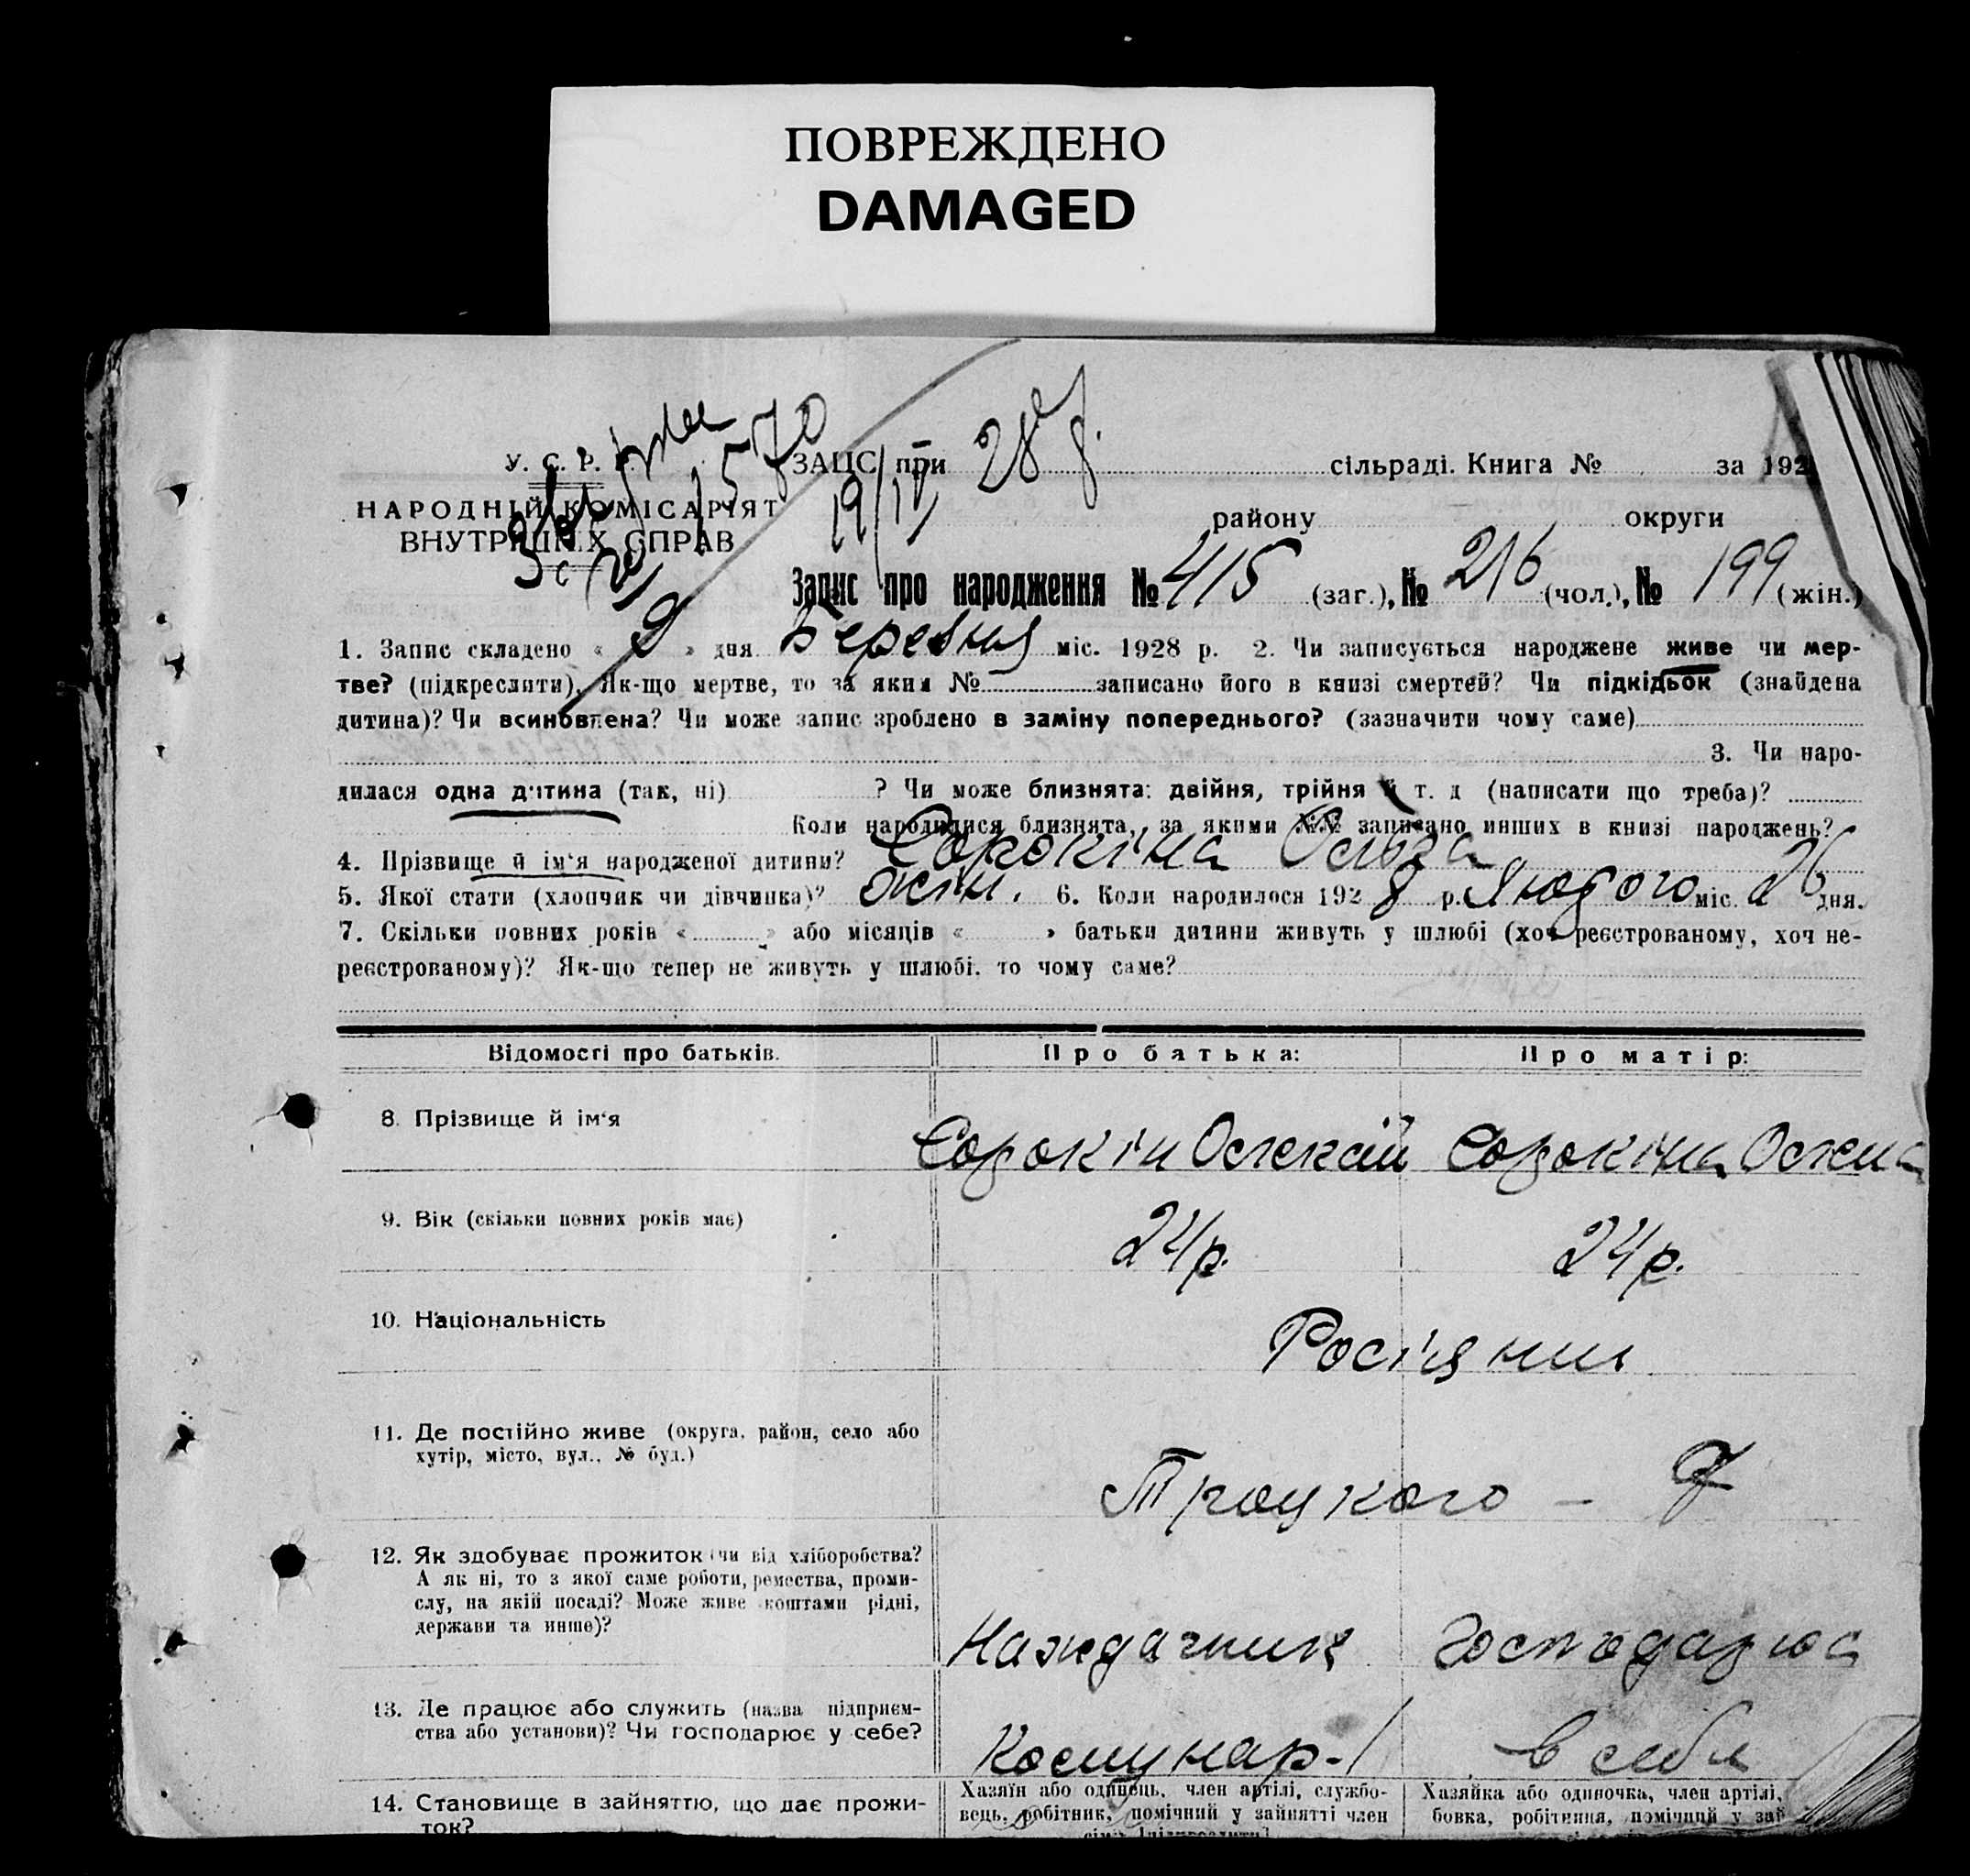 ПОВРЕЖДЕНО
DAMAGED
У. С. Р. Р. ЗАЦС при сільраді. Книга № за 192
НАРОДНІЙ КОМІСАРІЯТ району округи
ВНУТРІШНІХ СПРАВ
570
19/IV 28
Запис про народження № 415 (заг.), № 216 (чол.), № 199 (жін.)
1. Запис складено « 9 » дня Березня міс. 1928 р. 2. Чи записується народжене живе чи мер-
тве? (підкреслити). Як-що мертве, то за яким № записано його в книзі смертей? Чи підкідьок (знайдена
дитина)? Чи всиновлена? Чи може запис зроблено в заміну попереднього? (зазначити чому саме)
3. Чи наро-
дилася одна дитина (так, ні) ? Чи може близнята: двійня, трійня й т. д (написати що треба)?
Коли народилися близнята, за якими №№ записано инших в книзі народжень?
4. Прізвище й ім'я народженої дитини? Сорокіна Ольга
5. Якої стати (хлопчик чи дівчинка)? жін. 6. Коли народилося 1928 р. Лютого міс. 26 дня.
7. Скільки повних років « » або місяців « » батьки дитини живуть у шлюбі (хоч реєстрованому, хоч не-
реєстрованому)? Як-що тепер не живуть у шлюбі, то чому саме?
Відомості про батьків. Про батька: Про матір:
8. Прізвище й ім'я Сорокін Олексій Сорокіна Олена
9. Вік (скільки повних років має) 24 р. 24 р.
10. Національність Росіяни
11. Де постійно живе (округа, район, село або
хутір, місто, вул., № буд.) Троцкого –
12. Як здобуває прожиток (чи від хліборобства?
А як ні, то з якої саме роботи, ремества, проми-
слу, на якій посаді? Може живе коштами рідні,
держави та инше)? Наждачник Господарює
13. Де працює або служить (назва підприєм-
ства або установи)? Чи господарює у себе? Комунар в себе
14. Становище в зайняттю, що дає прожи-
ток?
Хазяїн або одинець, член артілі, службо-
вець, робітник, помічний у зайнятті член
Хазяйка або одиночка, член артілі,
бовка, робітниця, помічний у зай